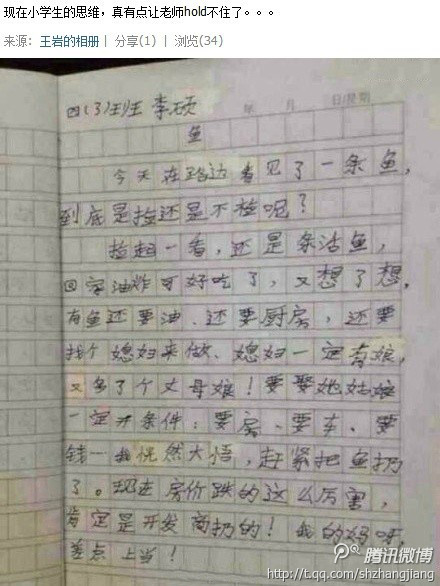 现在小学生的思维,真有点让老师hold不住了。。。
来源: 王岩的相册 | 分享(1) | 浏览(34)
四(3)班 李硕
年 月 日 星期
鱼
今天在路边看见了一条鱼,
到底是捡还是不捡呢?
捡起一看,还是条活鱼,
回家油炸可好吃了,又想了想,
有鱼还要油、还要厨房,还要
找个媳妇来做、媳妇一定有娘,
又多了个丈母娘!要娶她姑娘
一定开条件:要房、要车、要
钱一我恍然大悟,赶紧把鱼扔
了。现在房价跌的这么厉害,
肯定是开发商扔的!我的妈呀,
差点上当!
腾讯微博
http://t.qq.com/shzhangjiang